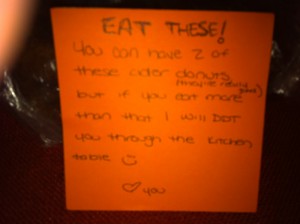 EAT THESE!
You can have 2 of
these cider donuts
(they're really good)
but if you eat more
than that I will DDT
you through the kitchen
table
you